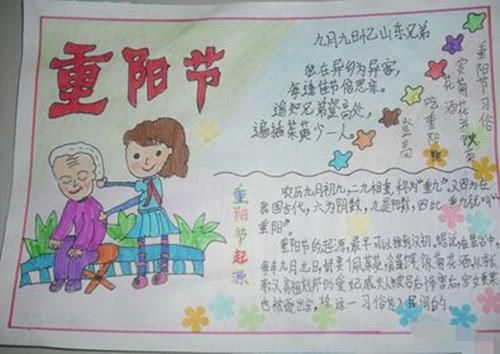 重阳节
九月九日忆山东兄弟
独在异乡为异客，
每逢佳节倍思亲。
遥知兄弟登高处，
遍插茱萸少一人。
重阳节习俗
赏菊花并饮菊
花酒
吃重阳糕
登高
重阳节起源
农历九月初九，二九相重，称为"重九"又因为在
我国古代，六为阴数，九是阳数，因此"重九就叫"
重阳"
重阳节的起源，最早可以推到汉初，据说，在皇宫中
每年九月九日，都要佩茱萸，食蓬饵，饮菊花酒，以求长
寿汉高祖刘邦的爱妃戚夫人被吕后惨害后，宫女贾某
也被逐出宫，将这一习俗传入民间的